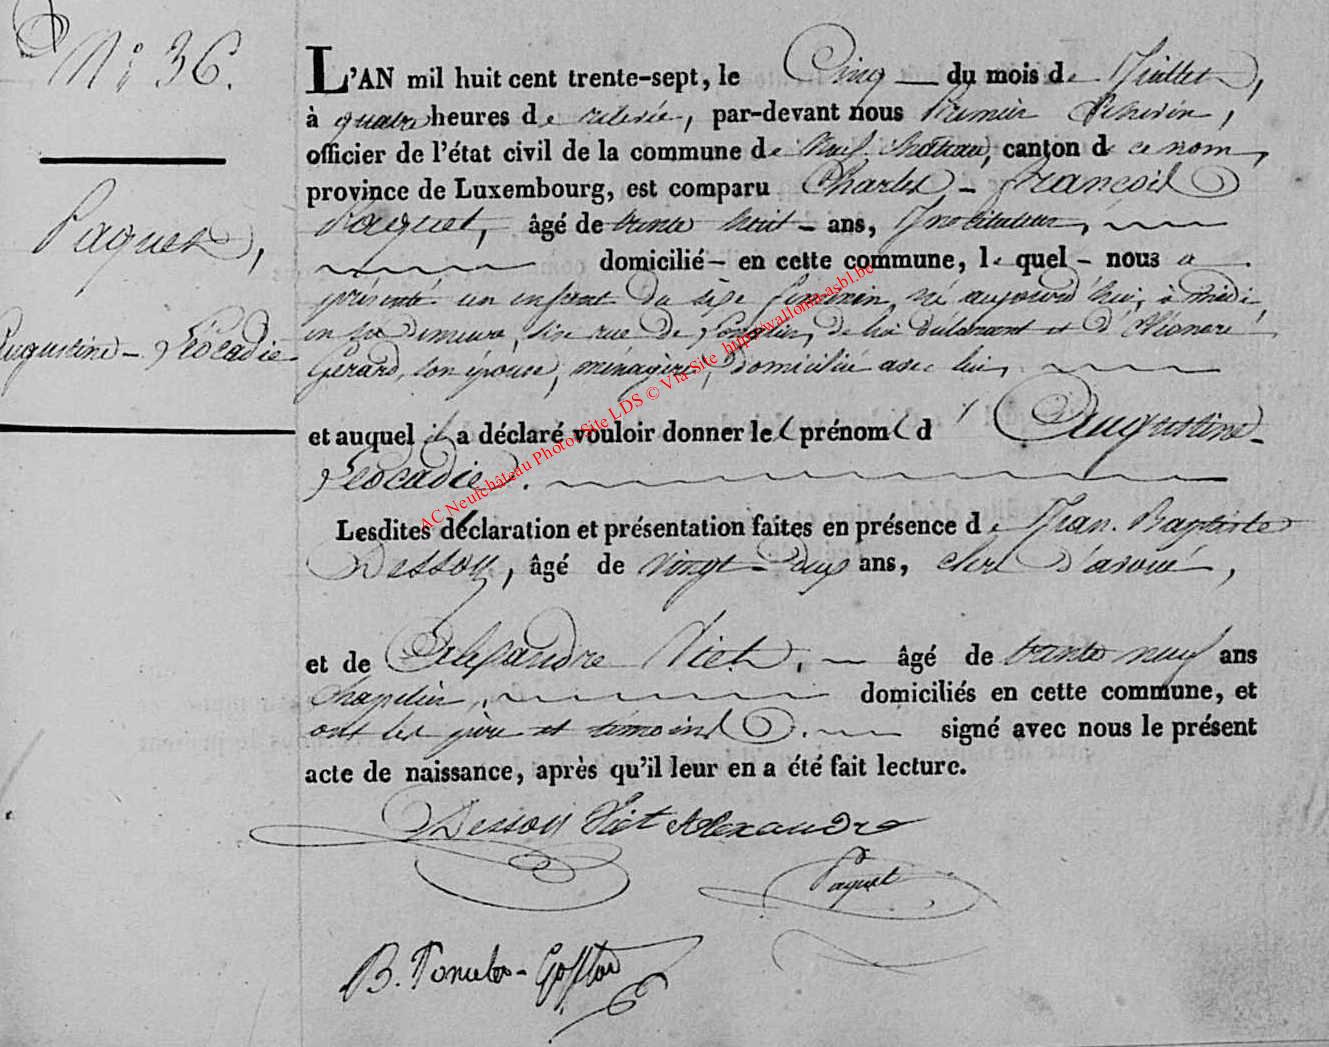 N° 36.
L'AN mil huit cent trente-sept, le Cinq du mois de Juillet,
à quatre heures de relevée, par-devant nous Premier Echevin,
officier de l'état civil de la commune de Neufchâteau, canton de ce nom,
province de Luxembourg, est comparu Charles-François
Paquet, âgé de trente huit ans, Instituteur,
domicilié en cette commune, lequel nous a
présenté un enfant du sexe féminin, né aujourd'hui, à midi,
en sa demeure, sise rue de de lui déclarant et d'Éléonore
Gérard, son épouse, ménagère, domiciliée avec lui,
Paquet,
Augustine-Léocadie
et auquel il a déclaré vouloir donner les prénoms d'Augustine-
Léocadie.
Lesdites déclaration et présentation faites en présence de Jean-Baptiste
Dessoy, âgé de vingt-deux ans, clerc d'avoué,
et de Alexandre Viet, âgé de trente neuf ans
Chapelier, domiciliés en cette commune, et
ont les père et témoins signé avec nous le présent
acte de naissance, après qu'il leur en a été fait lecture.
Dessoy Viet Alexandre
Paquet
B.
AC Neufchâteau Photo Site LDS © Via Site http://wallonia-asbl.be